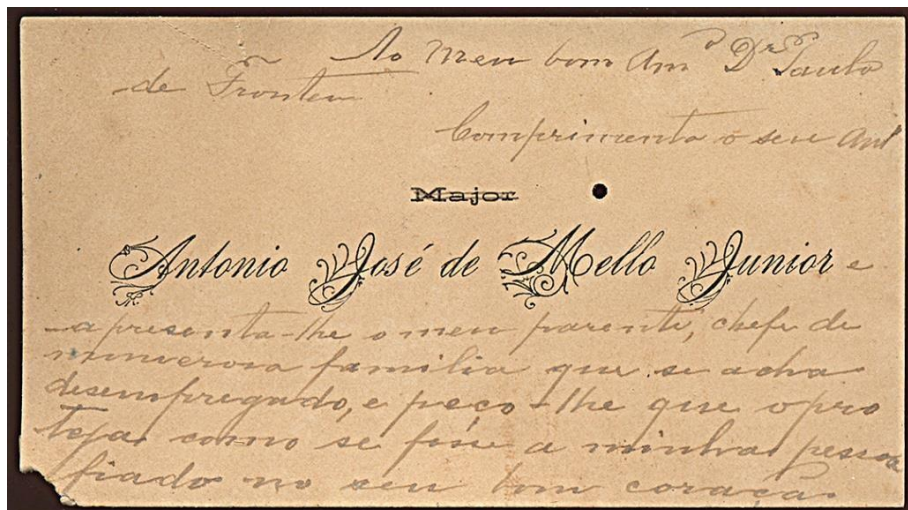 Ao Meu bom Amº Dr Paulo
de Frontin
Comprimenta o seu Amº
Major
Antonio José de Mello Junior e
apresenta-lhe o meu parente, chefe de
numerosa familia que se acha
desempregado, e peço-lhe que o pro
teja como se fosse a minha pessoa
fiado no seu bom coração